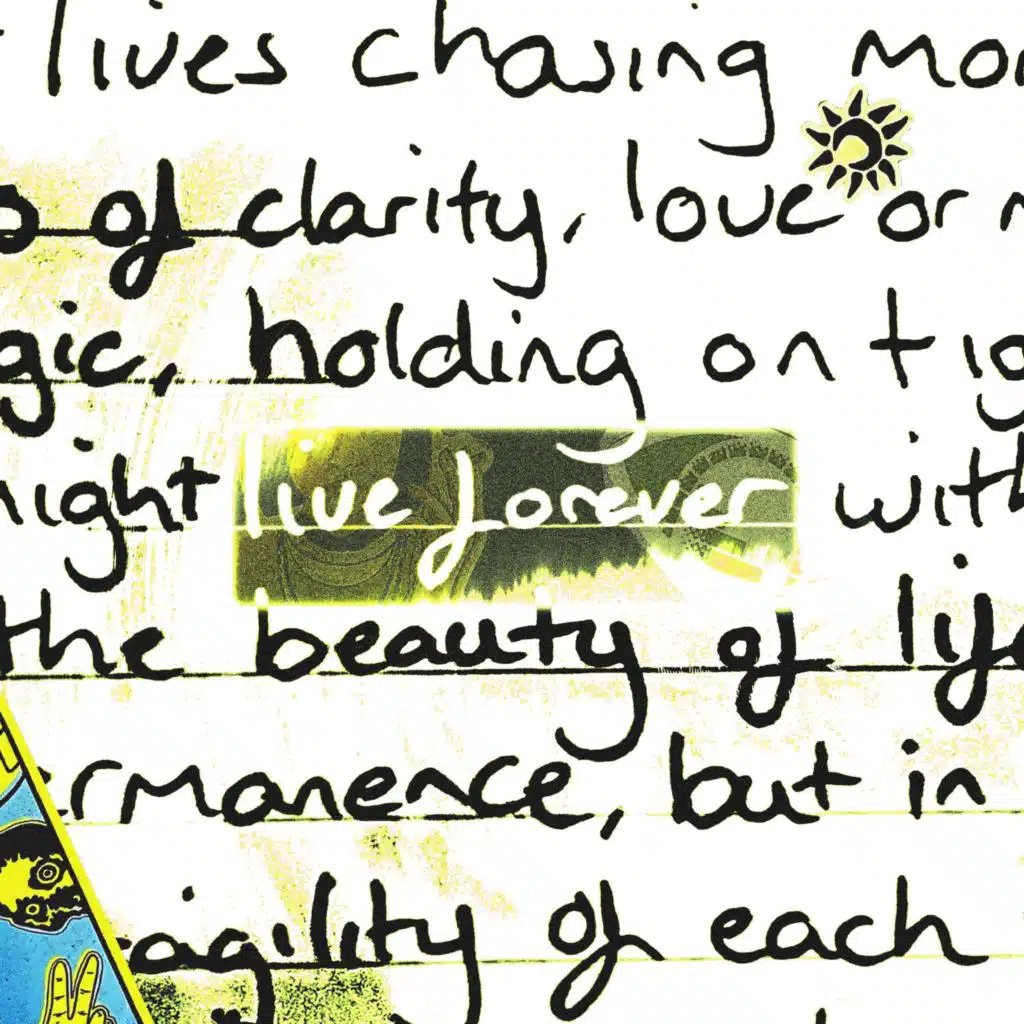 lives chasing mo
of clarity, love or
gic, holding on tig
night live forever with
the beauty of life
rmanence, but in
agility of each